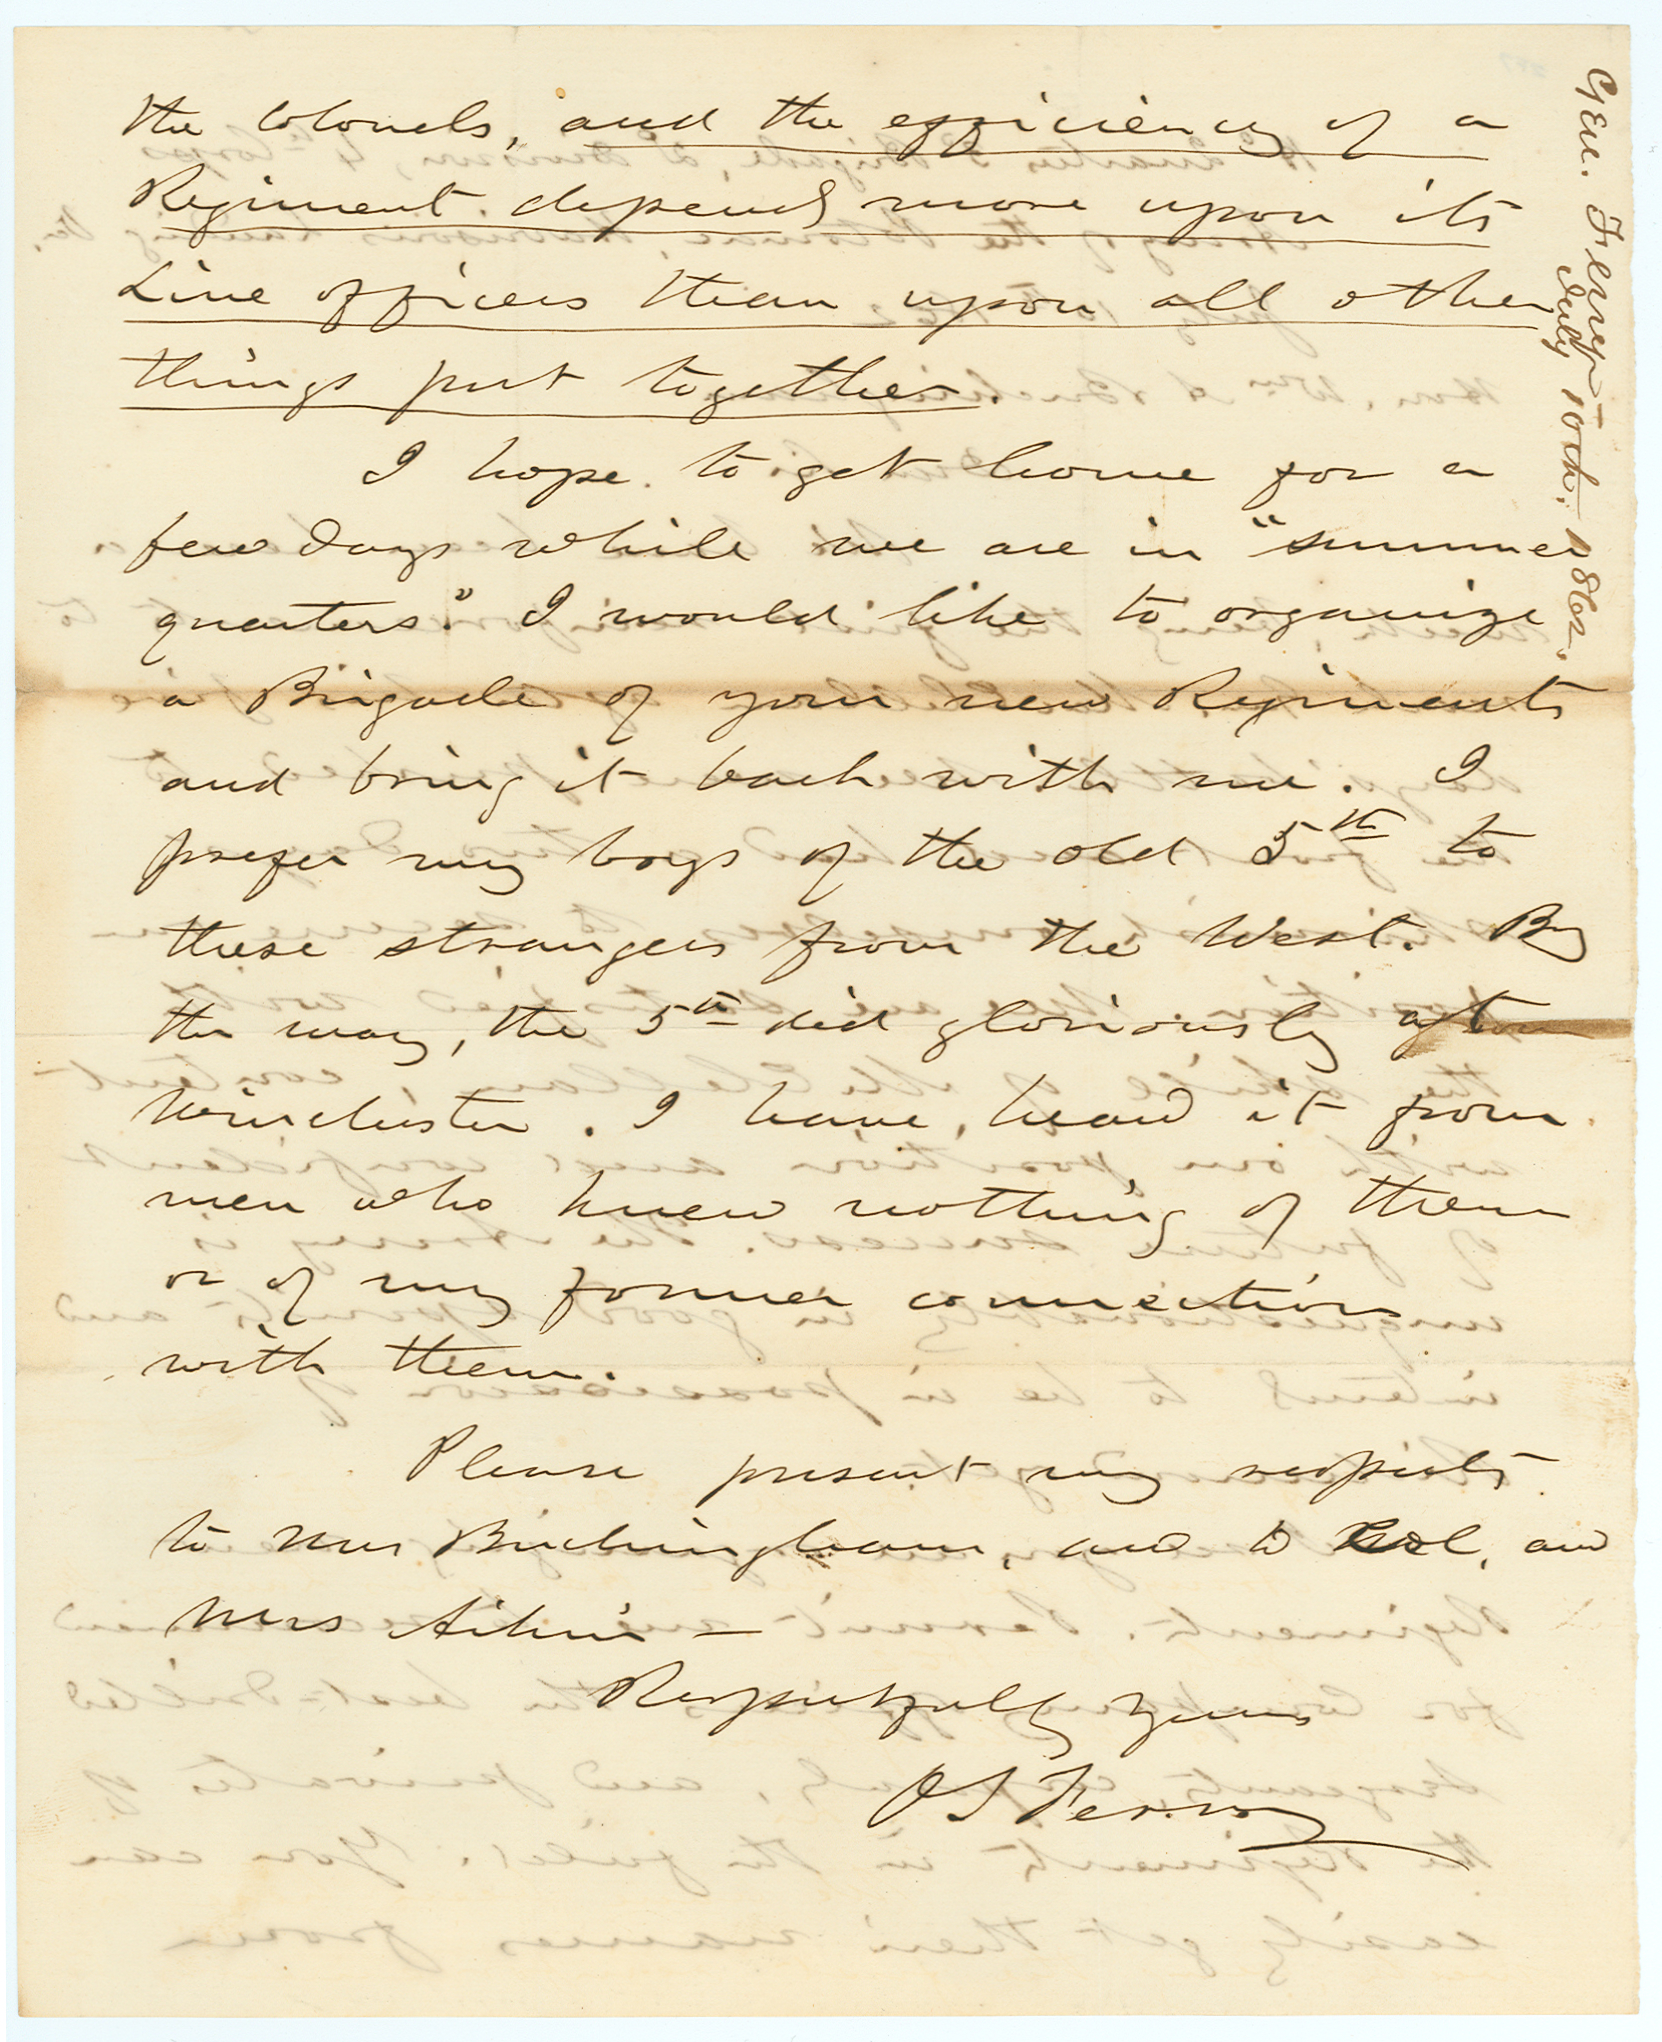 the Colonels, and the efficiency of a
Regiment depends more upon its
Line officers than upon all other
things put together
I hope to get home for a
few days while we are in "summer
quarters." I would like to organize
a Brigade of your new Regiments
and bring it back with me. I
prefer my boys of the old 5th to
these strangers from the West. By
the way, the 5th did gloriously at
Winchester. I have heard it from
men who knew nothing of them
or of my former connection
with them.
Please present my respects
to Mrs Buckingham, and to Col. and
Mrs Aiken —
Respectfully Yours
O S Ferry
Gen. Ferry
July 10th. 1862.